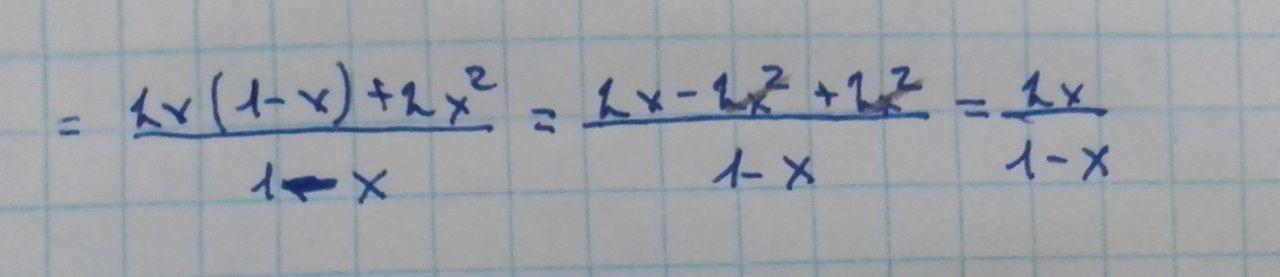 = \frac{2x(1-x)+2x^2}{1-x} = \frac{2x-2x^2+2x^2}{1-x} = \frac{2x}{1-x}